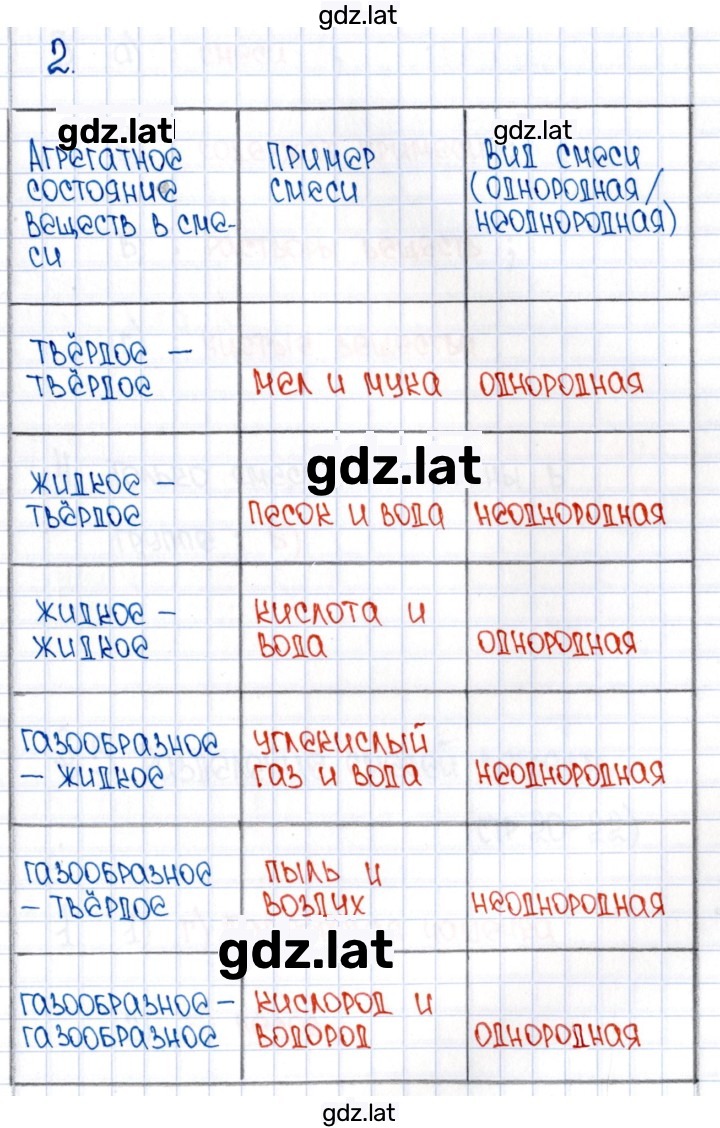 gdz.lat
2.
gdz.lat
gdz.lat
Агрегатное
состояние
веществ в сме-
си
Пример
смеси
Вид смеси
(однородная/
неоднородная)
твёрдое –
твёрдое
мел и мука
однородная
gdz.lat
жидкое –
твёрдое
песок и вода
неоднородная
жидкое –
жидкое
кислота и
вода
однородная
газообразное
– жидкое
углекислый
газ и вода
неоднородная
газообразное
– твёрдое
пыль и
воздух
неоднородная
gdz.lat
газообразное –
газообразное
кислород и
водород
однородная
gdz.lat